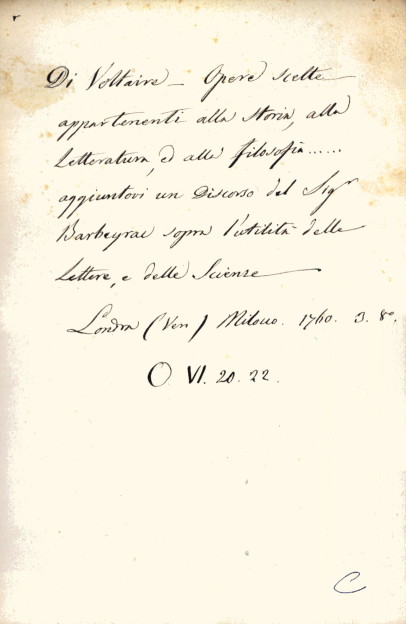 Di Voltaire – Opere scelte
appartenenti alla storia, alla
Letteratura, ed alla filosofia......
aggiuntovi un Discorso del Sigr
Barbeyrac sopra l'utilità delle
Lettere, e delle Scienze
Londra (Ven) Milocco. 1760. 3. 8o.
O. VI. 20. 22.
C